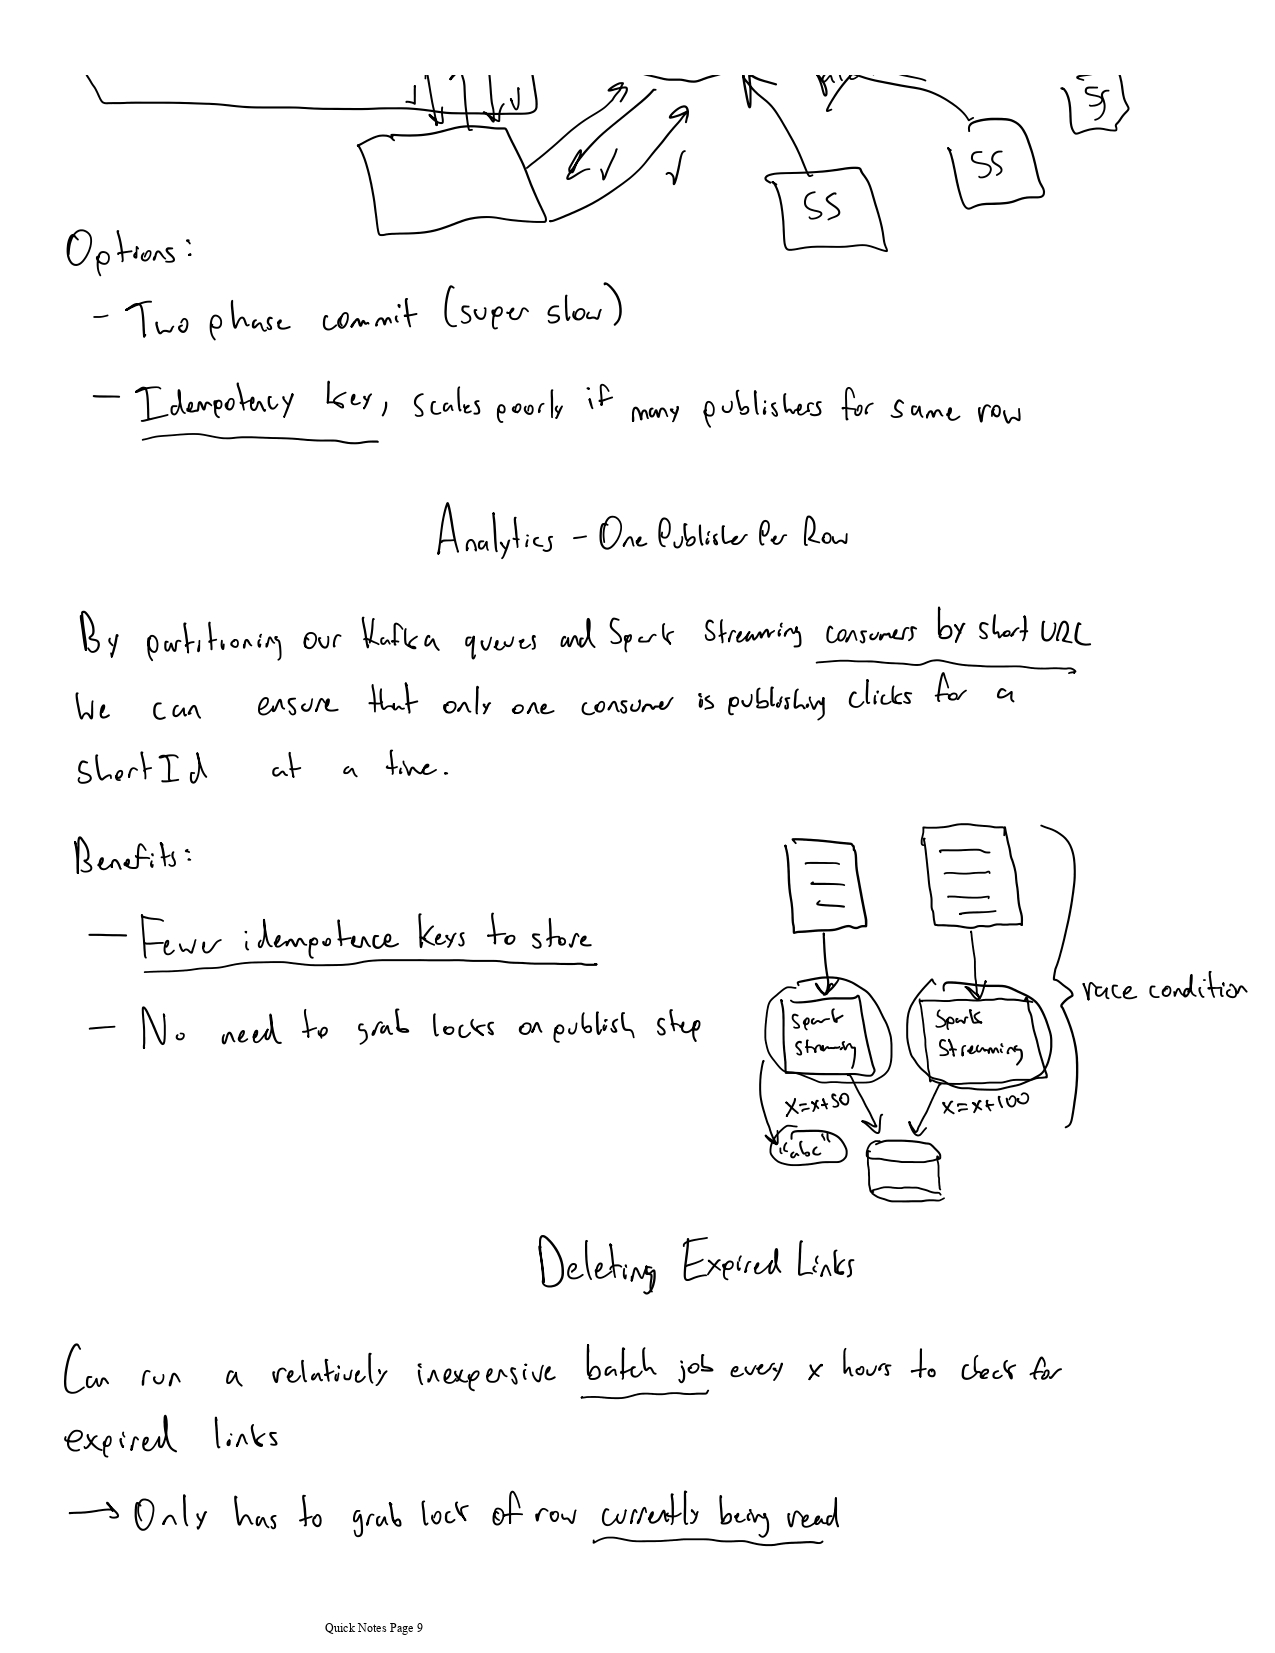 SS
SS
SS
Options:
- Two phase commit (super slow)
- Idempotency key, scales poorly if many publishers for same row
Analytics - One Publisher Per Row
By partitioning our Kafka queues and Spark Streaming consumers by short URL
we can ensure that only one consumer is publishing clicks for a
shortId at a time.
Benefits:
- Fewer idempotence keys to store
- No need to grab locks on publish step
Spark
Streaming
Spark
Streaming
race condition
x=x+50
x=x+100
"abc"
Deleting Expired Links
Can run a relatively inexpensive batch job every x hours to check for
expired links
→ Only has to grab lock of row currently being read
Quick Notes Page 9